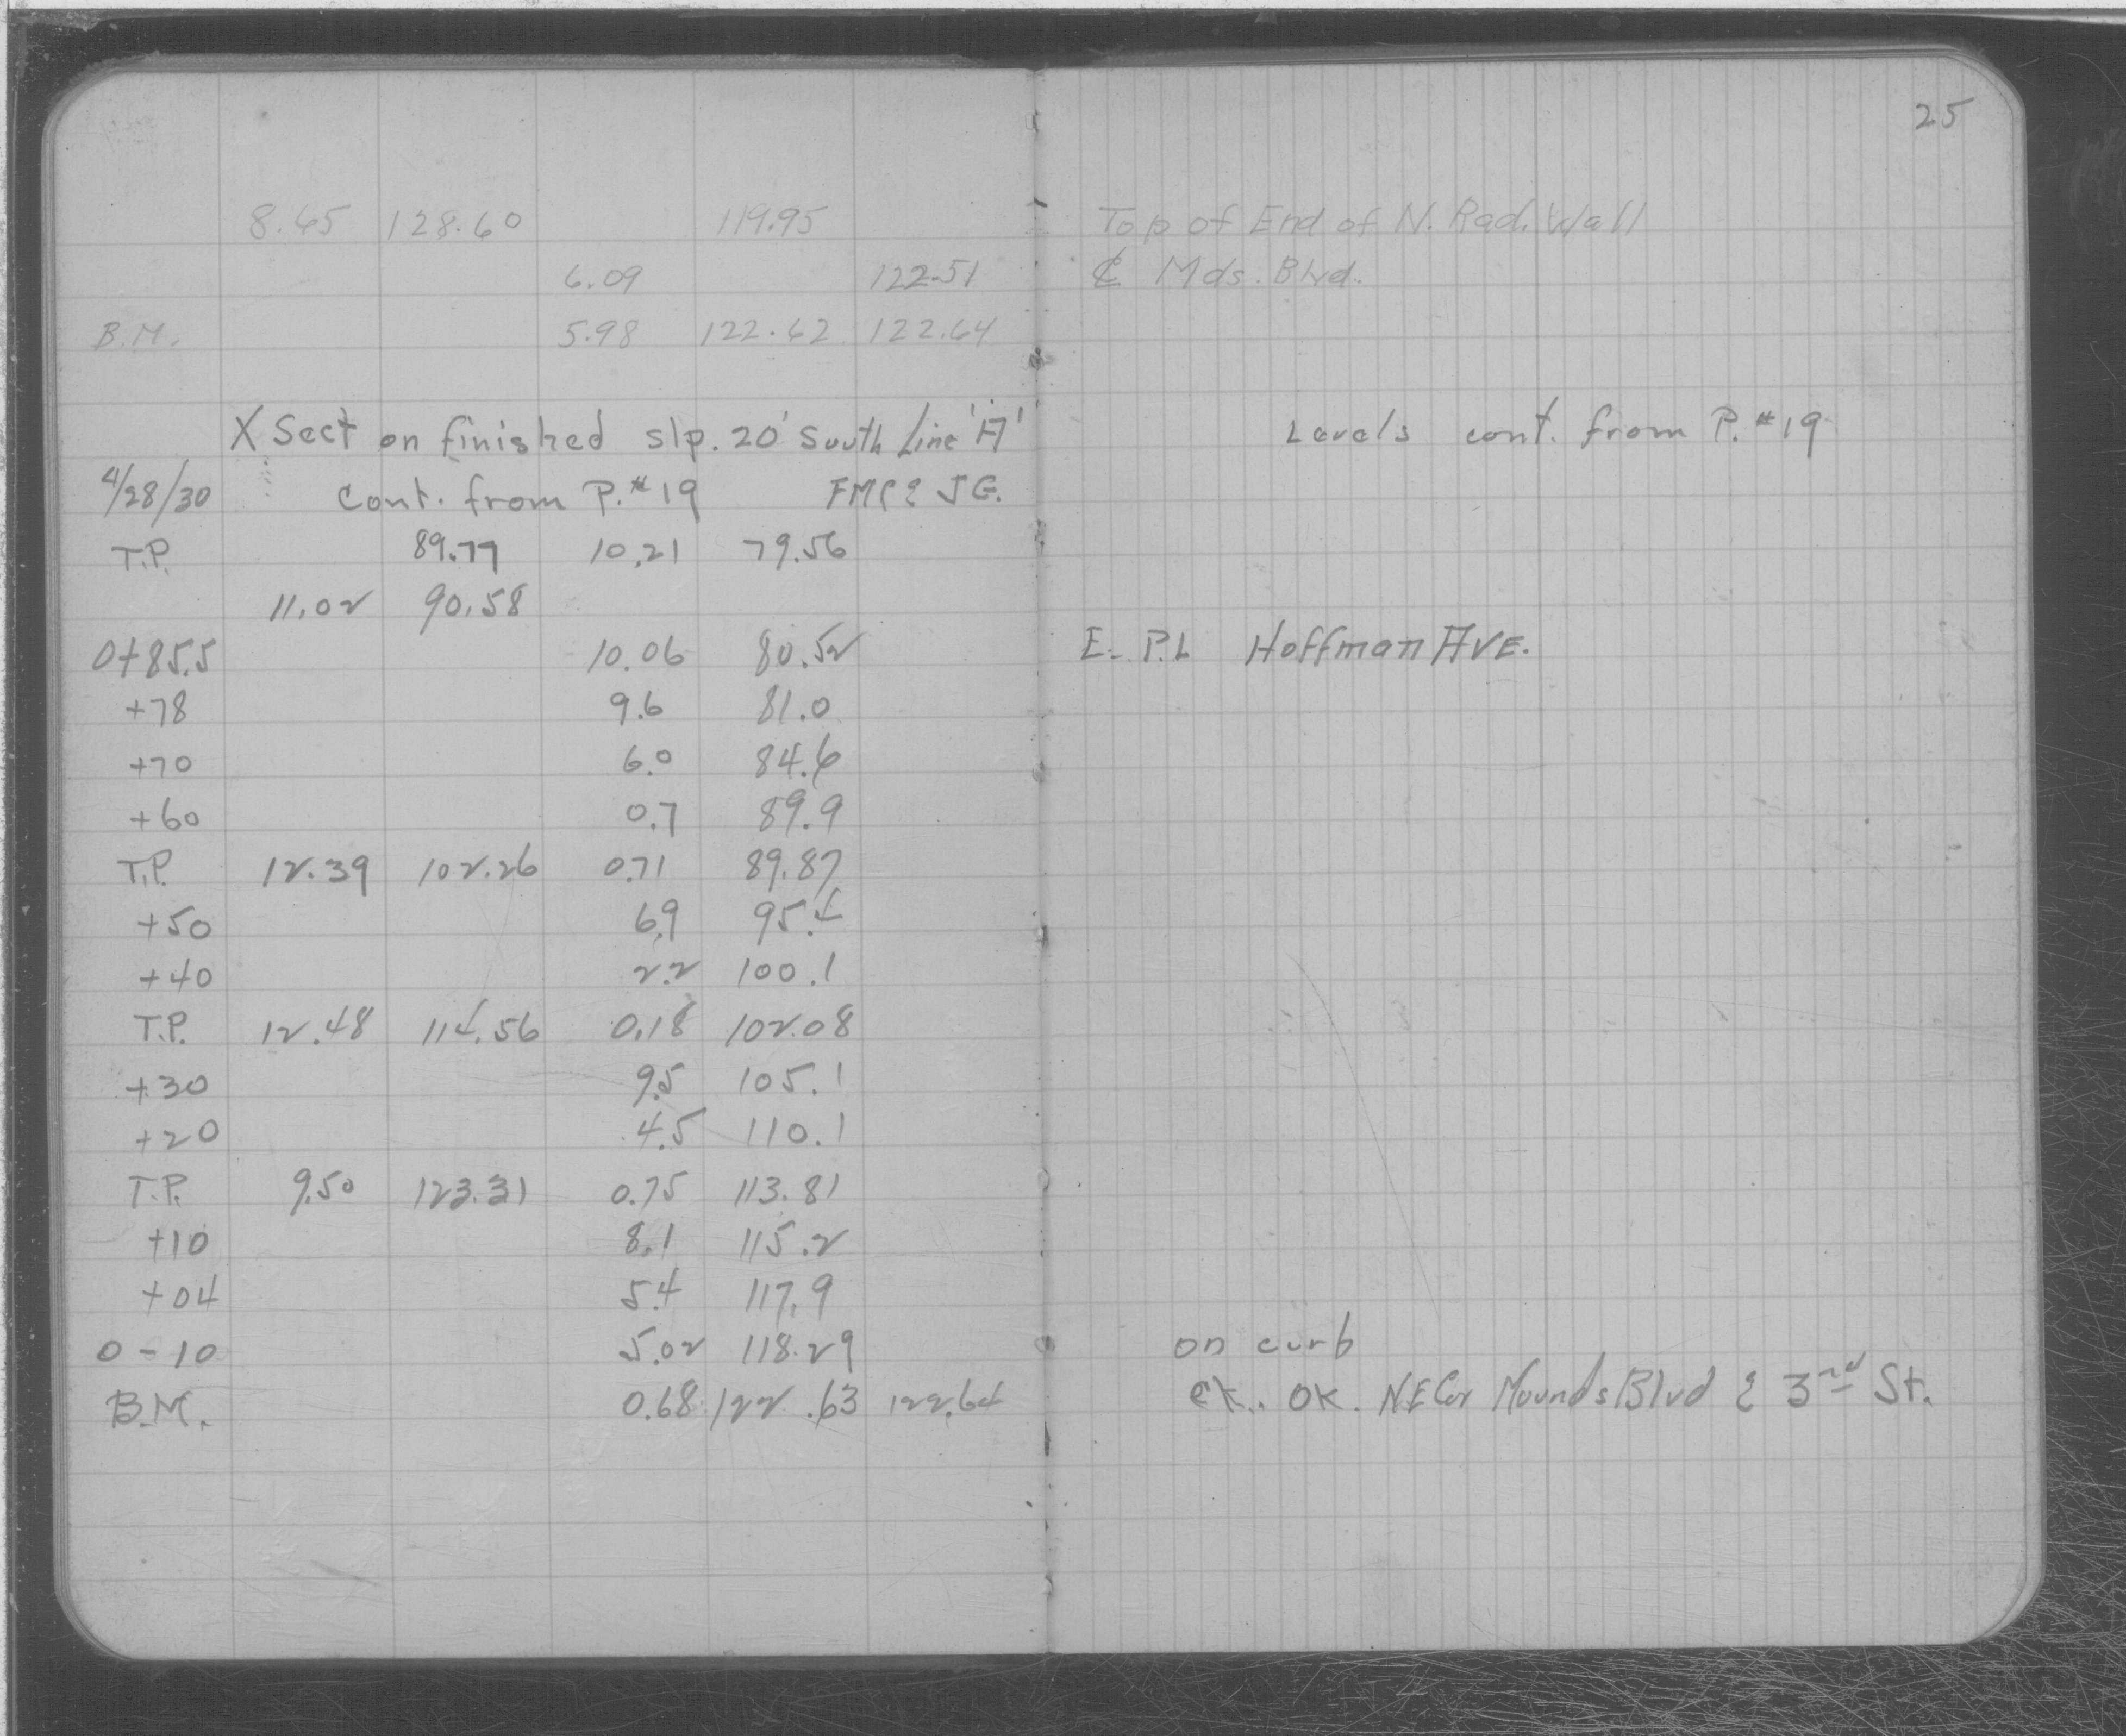 25
8.65 128.60 119.95 Top of End of N. Rad. Wall
6.09 122.51 ℄ Mds. Blvd.
B.M. 5.98 122.62 122.64
X Sect on finished slp. 20' South Line 'A' Levels cont. from P. #19
4/28/30 Cont. from P. #19 & J G.
T.P. 89.77 10.21 79.56
11.02 90.58
0+85.5 10.06 80.52 E. P.L Hoffman AVE.
+78 9.6 81.0
+70 6.0 84.6
+60 0.7 89.9
T.P. 12.39 102.26 0.71 89.87
+50 6.9 95.4
+40 2.2 100.1
T.P. 12.48 114.56 0.18 102.08
+30 9.5 105.1
+20 4.5 110.1
T.P. 9.50 123.31 0.75 113.81
+10 8.1 115.2
+04 5.4 117.9
0-10 5.02 118.29 on curb
B.M. 0.68 122.63 122.64 ck. OK. NE Cor Mounds Blvd & 3rd St.